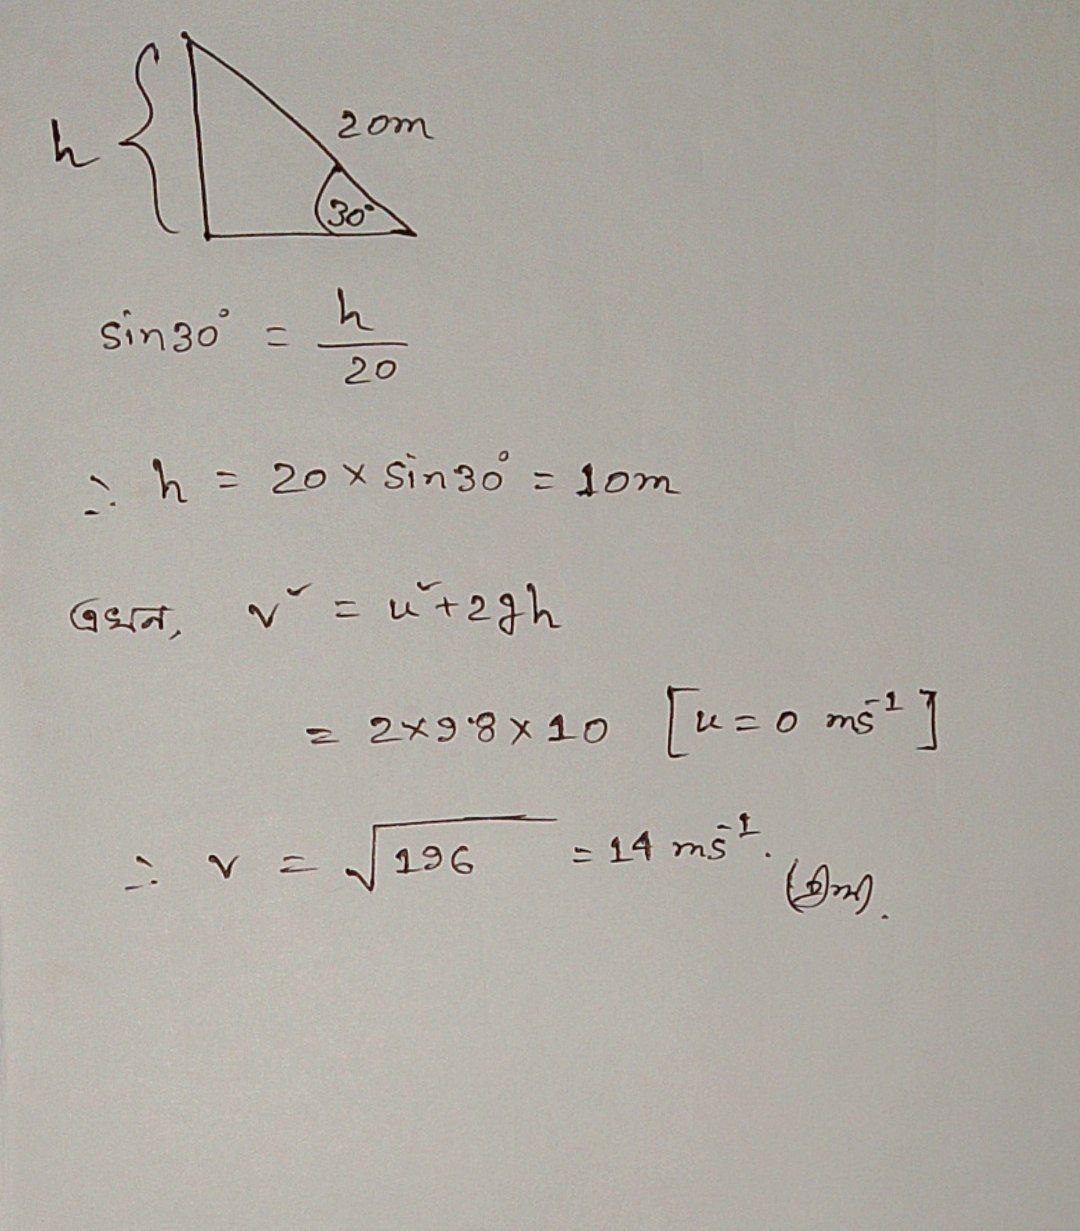 h
20m
30°
sin30° = h/20
∴ h = 20 × sin30° = 10m
এখন, v² = u² + 2gh
= 2×9.8×10 [u = 0 ms⁻¹]
∴ v = √196 = 14 ms⁻¹.
(Ans).